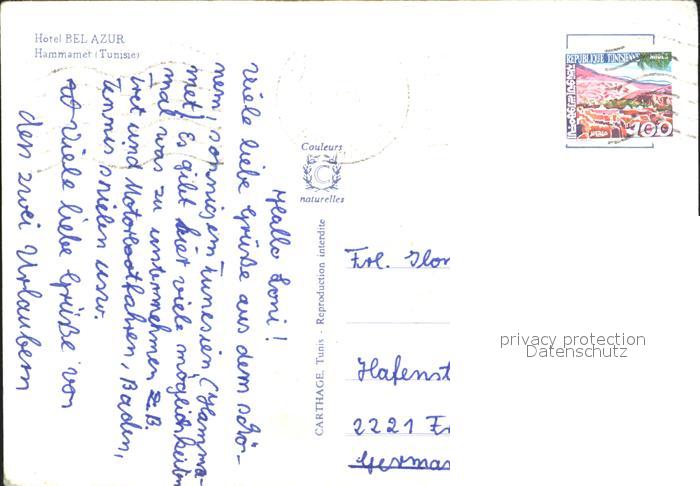 Hotel BEL AZUR
Hammamet (Tunisie)
Hallo Loni!
Viele liebe Grüße aus dem schö-
nem, sonnigem Tunesien, (Hamma-
met) Es gibt hier viele möglichkeiten
mal was zu unternehmen z.B.
und Motorbootfahren, Baden,
Tennis spielen usw.
Viele liebe Grüße von
den zwei Urlaubern
Couleurs
C
naturelles
CARTHAGE, Tunis - Reproduction interdite
REPUBLIQUE TUNISIENNE
100
Frl. Ilon
Hafenst
2221
German
privacy protection
Datenschutz